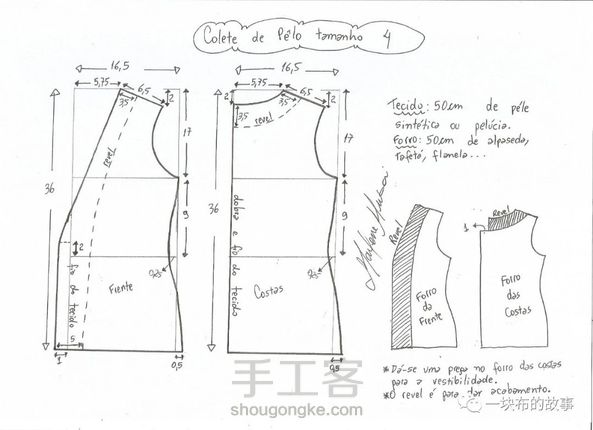 Colete de Pêlo tamanho 4
16,5
5,75
6,5
3,5
2
revel
17
36
9
2
Frente
fio do tecido
5
1
0,5
16,5
5,75
6,5
2
3,5
3,5
revel
17
36
9
dobra e fio do tecido
Costas
0,5
Tecido: 50cm de péle
sintética ou pelúcia.
Forro: 50cm de alpaseda,
tafetá, flanela...
Revel
Forro
da
Frente
Revel
1
Forro
das
Costas
*Dá-se uma prega no forro das costas
para a vestibilidade.
*O revel é para dar acabamento.
手工客
shougongke.com
一块布的故事